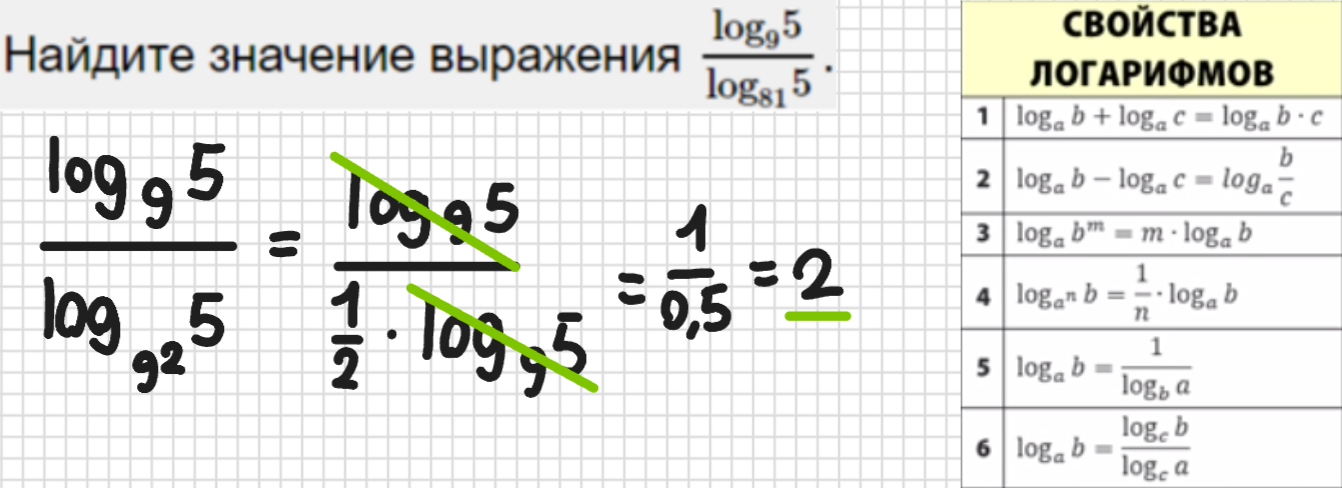 Найдите значение выражения log₉5 / log₈₁5 .
log₉5 / log₉²5 = log₉5 / (1/2 · log₉5) = 1/0,5 = 2
СВОЙСТВА
ЛОГАРИФМОВ
1 logₐ b + logₐ c = logₐ b · c
2 logₐ b − logₐ c = logₐ b/c
3 logₐ bᵐ = m · logₐ b
4 log_{aⁿ} b = 1/n · logₐ b
5 logₐ b = 1 / log_b a
6 logₐ b = log_c b / log_c a